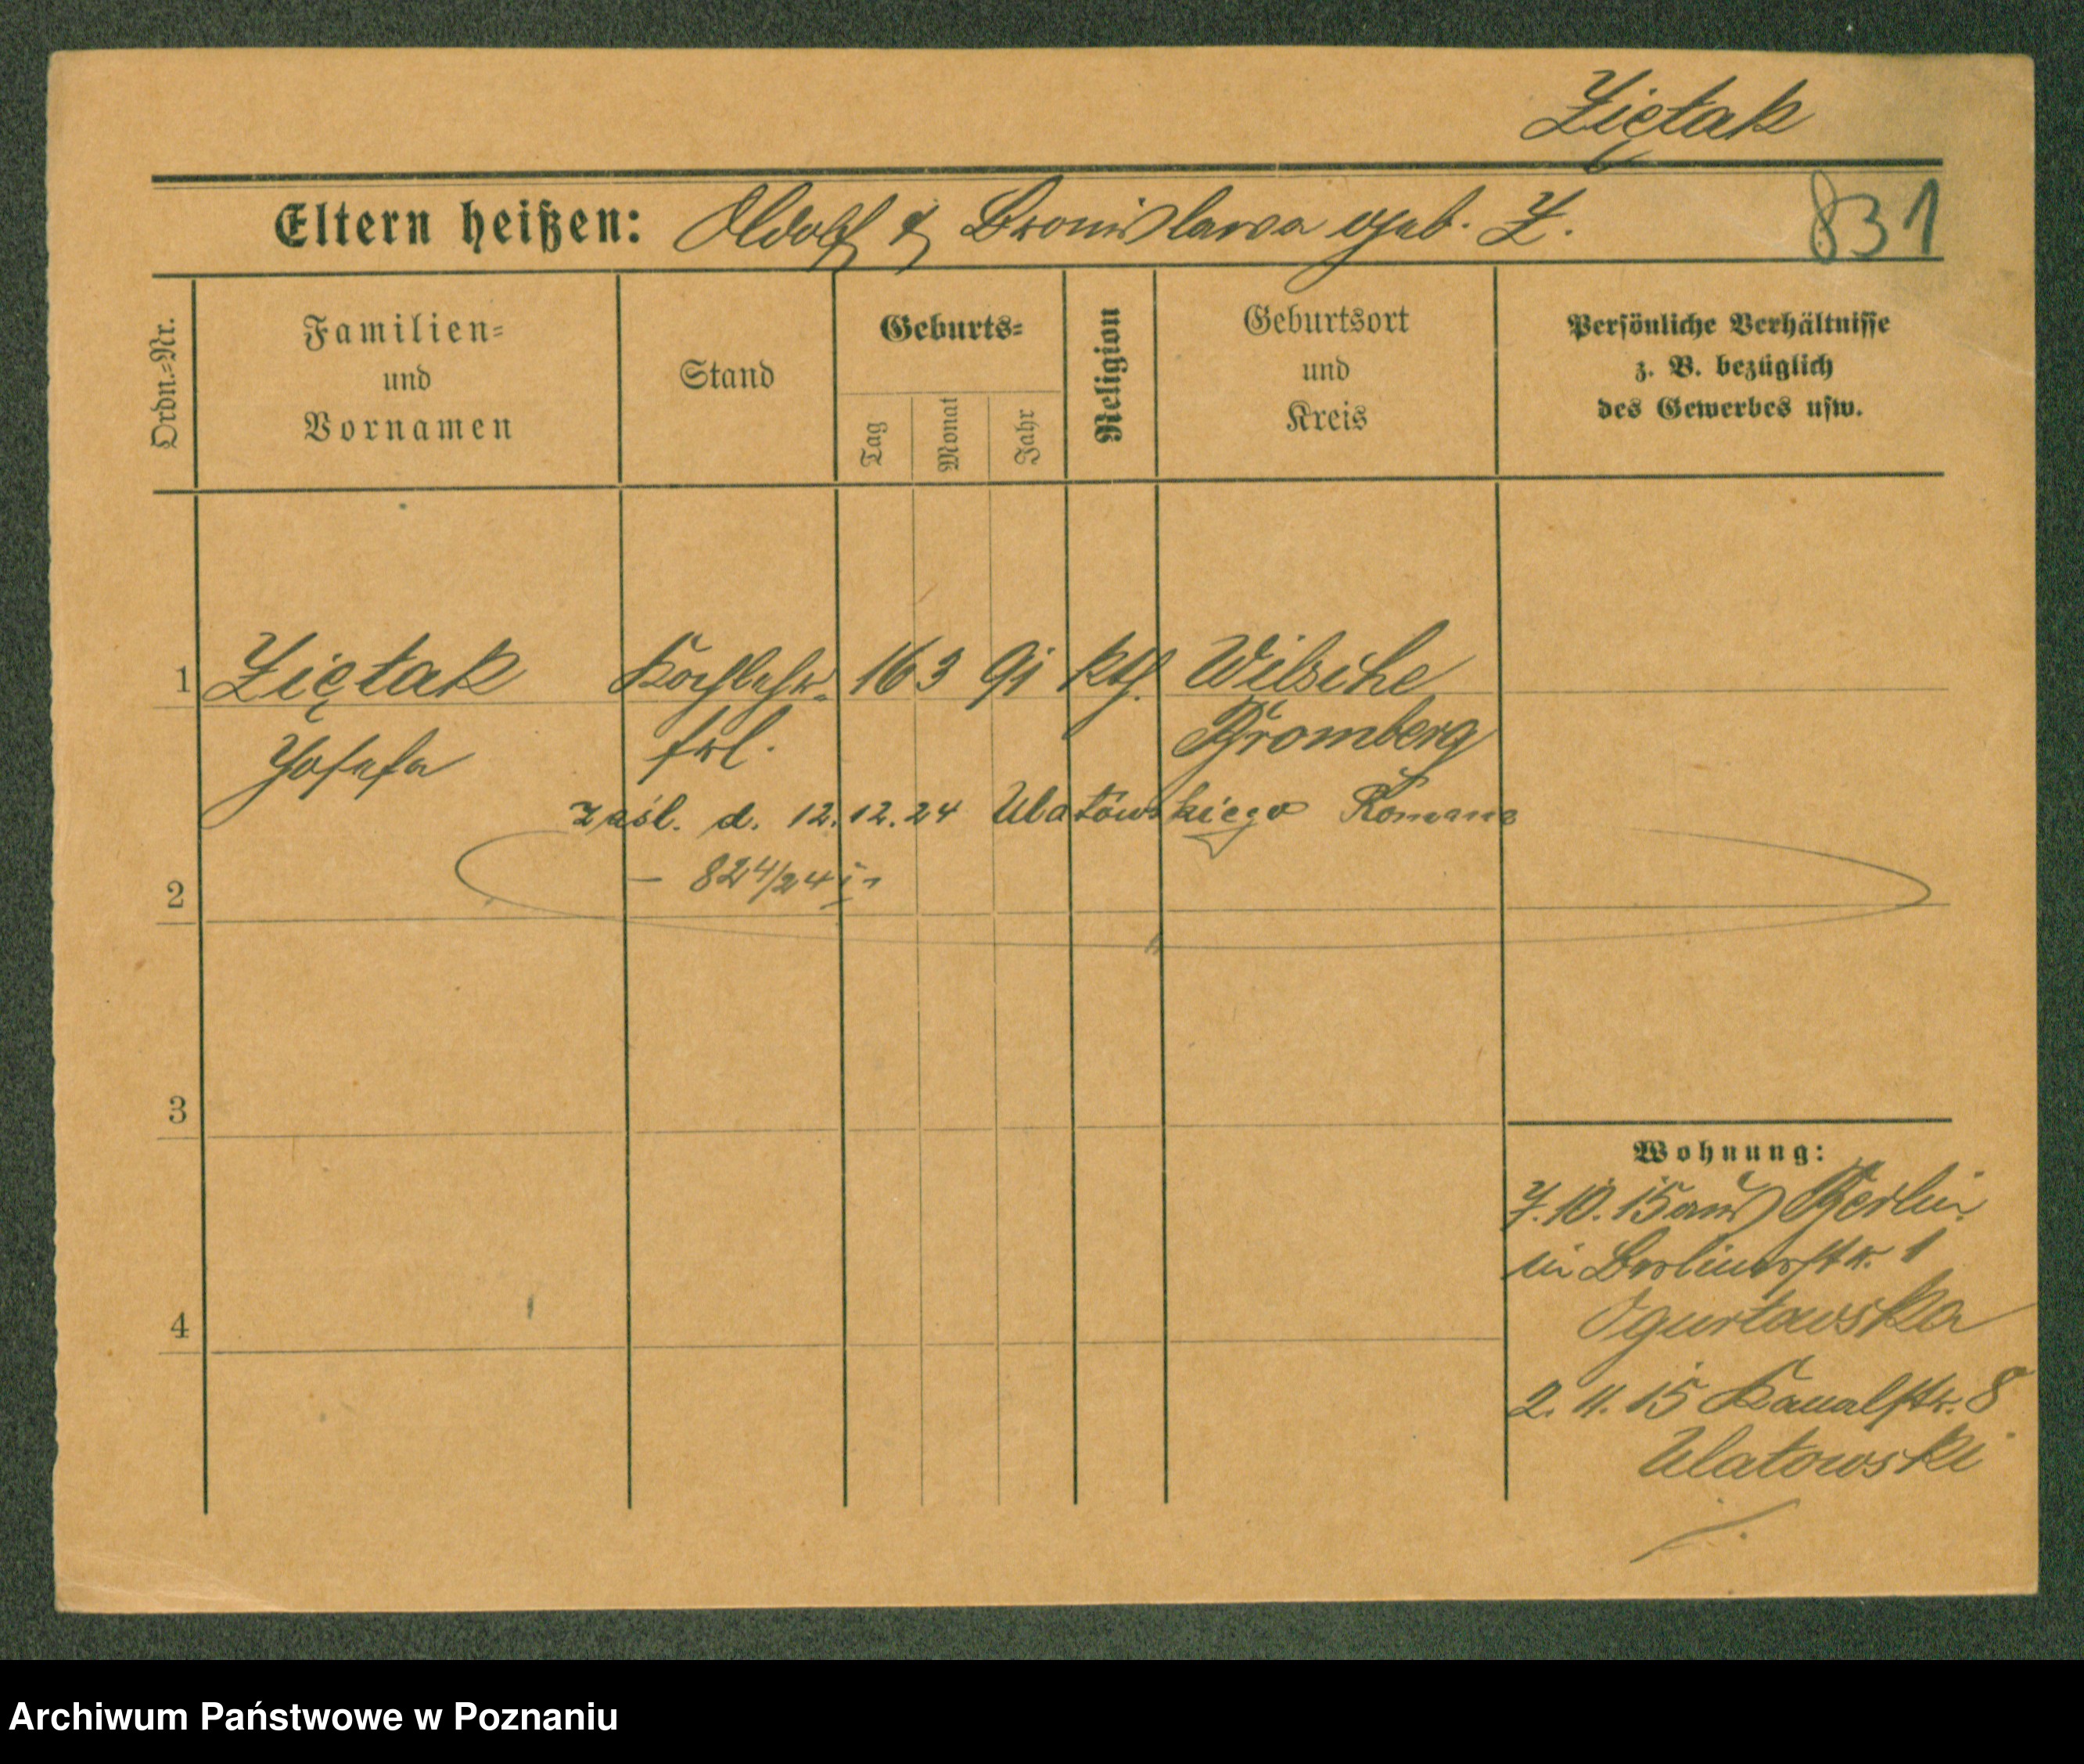 Ziętak
Eltern heißen: Adolf & Bronislawa geb. Z.
831
Ordn.-Nr.
Familien-
und
Vornamen
Stand
Geburts-
Tag
Monat
Jahr
Religion
Geburtsort
und
Kreis
Persönliche Verhältnisse
z. B. bezüglich
des Gewerbes usw.
1 Ziętak Kochlehr- 16 3 91 kth. Wilsche
Josefa frl. Bromberg
zaśl. d. 12.12.24 Ulatowskiego Romana
— 824/24
2
3
4
Wohnung:
7.10.15 aus Berlin
in Berlinerstr. 1
Ogurtowska
2. 11. 15 Kanalstr. 8
Ulatowski
Archiwum Państwowe w Poznaniu